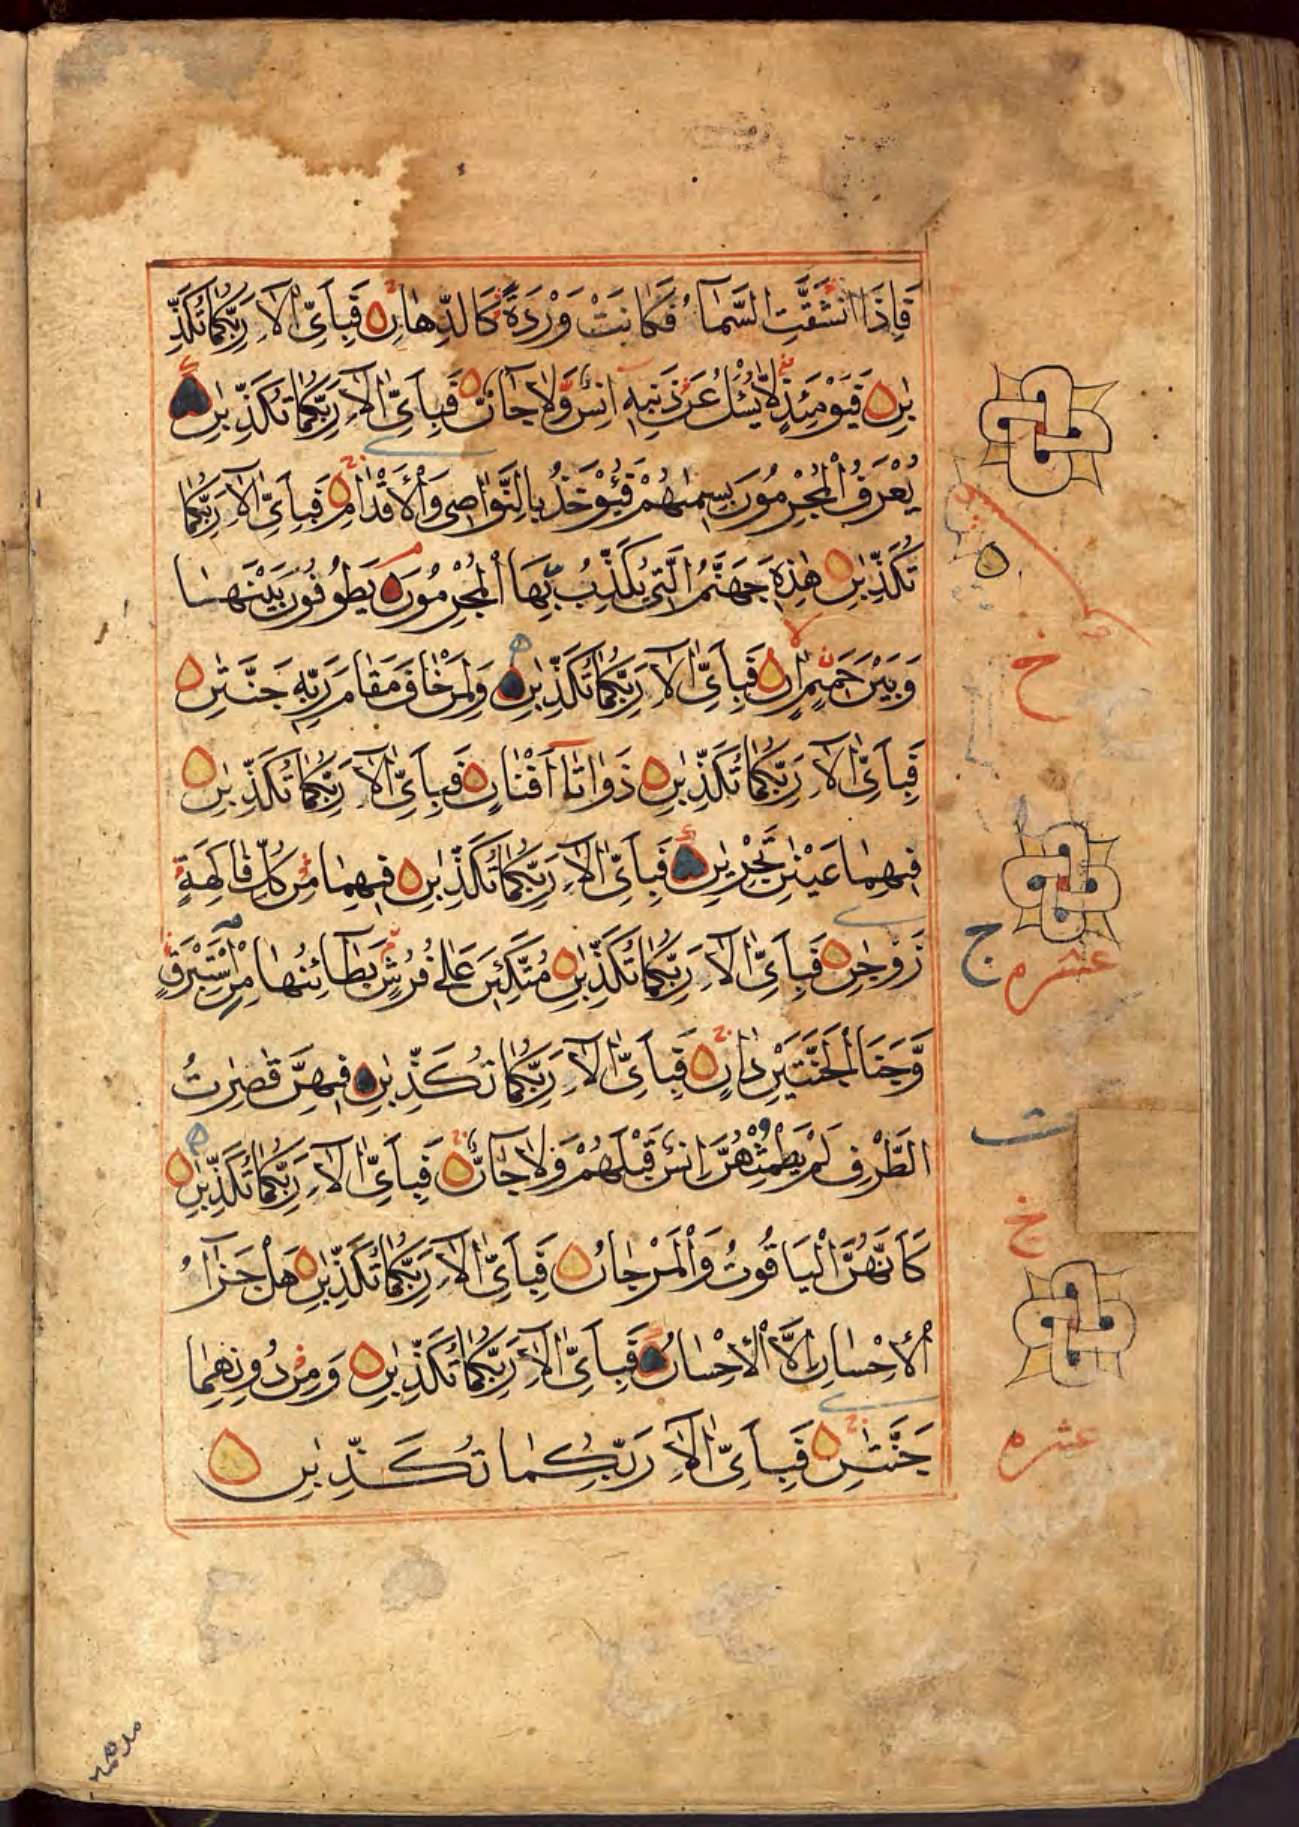 فَاِذَا انْشَقَّتِ السَّمَآءُ فَكَانَتْ وَرْدَةً كَالدِّهَانِ فَبِاَيِّ اٰلَآءِ رَبِّكُمَا تُكَذِّ
بٰنِ فَيَوْمَئِذٍ لَّا يُسْـَٔلُ عَنْ ذَنْبِهٖٓ اِنْسٌ وَّلَا جَآنٌّ فَبِاَيِّ اٰلَآءِ رَبِّكُمَا تُكَذِّبٰنِ
يُعْرَفُ الْمُجْرِمُوْنَ بِسِيْمٰهُمْ فَيُؤْخَذُ بِالنَّوَاصِيْ وَالْاَقْدَامِ فَبِاَيِّ اٰلَآءِ رَبِّكُمَا
تُكَذِّبٰنِ هٰذِهٖ جَهَنَّمُ الَّتِيْ يُكَذِّبُ بِهَا الْمُجْرِمُوْنَ يَطُوْفُوْنَ بَيْنَهَا
وَبَيْنَ حَمِيْمٍ اٰنٍ فَبِاَيِّ اٰلَآءِ رَبِّكُمَا تُكَذِّبٰنِ وَلِمَنْ خَافَ مَقَامَ رَبِّهٖ جَنَّتٰنِ
فَبِاَيِّ اٰلَآءِ رَبِّكُمَا تُكَذِّبٰنِ ذَوَاتَآ اَفْنَانٍ فَبِاَيِّ اٰلَآءِ رَبِّكُمَا تُكَذِّبٰنِ
فِيْهِمَا عَيْنٰنِ تَجْرِيٰنِ فَبِاَيِّ اٰلَآءِ رَبِّكُمَا تُكَذِّبٰنِ فِيْهِمَا مِنْ كُلِّ فَاكِهَةٍ
زَوْجٰنِ فَبِاَيِّ اٰلَآءِ رَبِّكُمَا تُكَذِّبٰنِ مُتَّكِـِٕيْنَ عَلٰى فُرُشٍ بَطَآئِنُهَا مِنْ اِسْتَبْرَقٍ
وَّجَنَا الْجَنَّتَيْنِ دَانٍ فَبِاَيِّ اٰلَآءِ رَبِّكُمَا تُكَذِّبٰنِ فِيْهِنَّ قٰصِرٰتُ
الطَّرْفِ لَمْ يَطْمِثْهُنَّ اِنْسٌ قَبْلَهُمْ وَلَا جَآنٌّ فَبِاَيِّ اٰلَآءِ رَبِّكُمَا تُكَذِّبٰنِ
كَاَنَّهُنَّ الْيَاقُوْتُ وَالْمَرْجَانُ فَبِاَيِّ اٰلَآءِ رَبِّكُمَا تُكَذِّبٰنِ هَلْ جَزَآءُ
الْاِحْسَانِ اِلَّا الْاِحْسَانُ فَبِاَيِّ اٰلَآءِ رَبِّكُمَا تُكَذِّبٰنِ وَمِنْ دُوْنِهِمَا
جَنَّتٰنِ فَبِاَيِّ اٰلَآءِ رَبِّكُمَا تُكَذِّبٰنِ
خ
ج
عشره
ت
خ
عشره